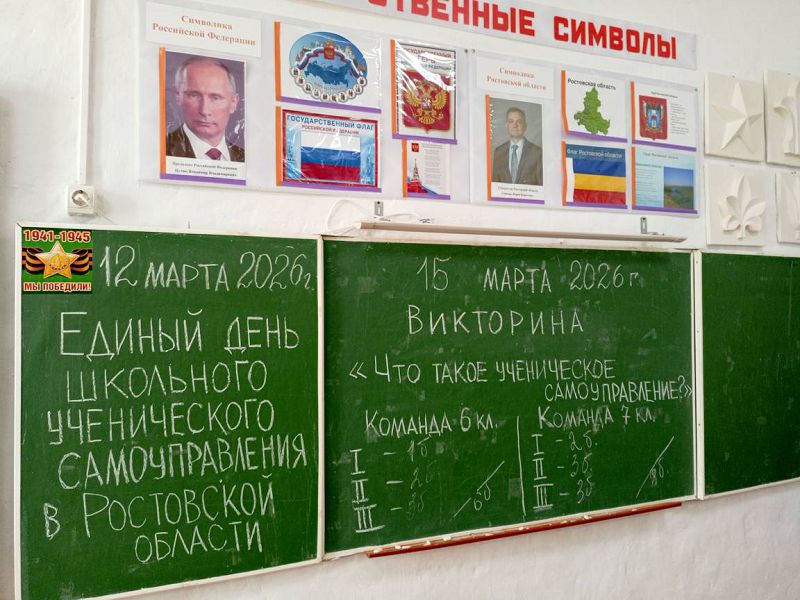 СТВЕННЫЕ СИМВОЛЫ
Символика
Российской Федерации
Президент Российской Федерации
Путин Владимир Владимирович
ГОСУДАРСТВЕННЫЙ ФЛАГ
РОССИЙСКОЙ ФЕДЕРАЦИИ
ГОСУДАРСТВЕННЫЙ
ГЕРБ
Символика
Ростовской области
Ростовская область
Флаг Ростовской области
1941-1945
МЫ ПОБЕДИЛИ!
12 МАРТА 2026г.
ЕДИНЫЙ ДЕНЬ
ШКОЛЬНОГО
УЧЕНИЧЕСКОГО
САМОУПРАВЛЕНИЯ
В РОСТОВСКОЙ
ОБЛАСТИ
15 МАРТА 2026 г
ВИКТОРИНА
«ЧТО ТАКОЕ УЧЕНИЧЕСКОЕ
САМОУПРАВЛЕНИЕ?»
КОМАНДА 6 КЛ.
I - 1б
II - 2б
III - 3б
6б
КОМАНДА 7 КЛ.
I - 2б.
II - 3б.
III - 3б
8б